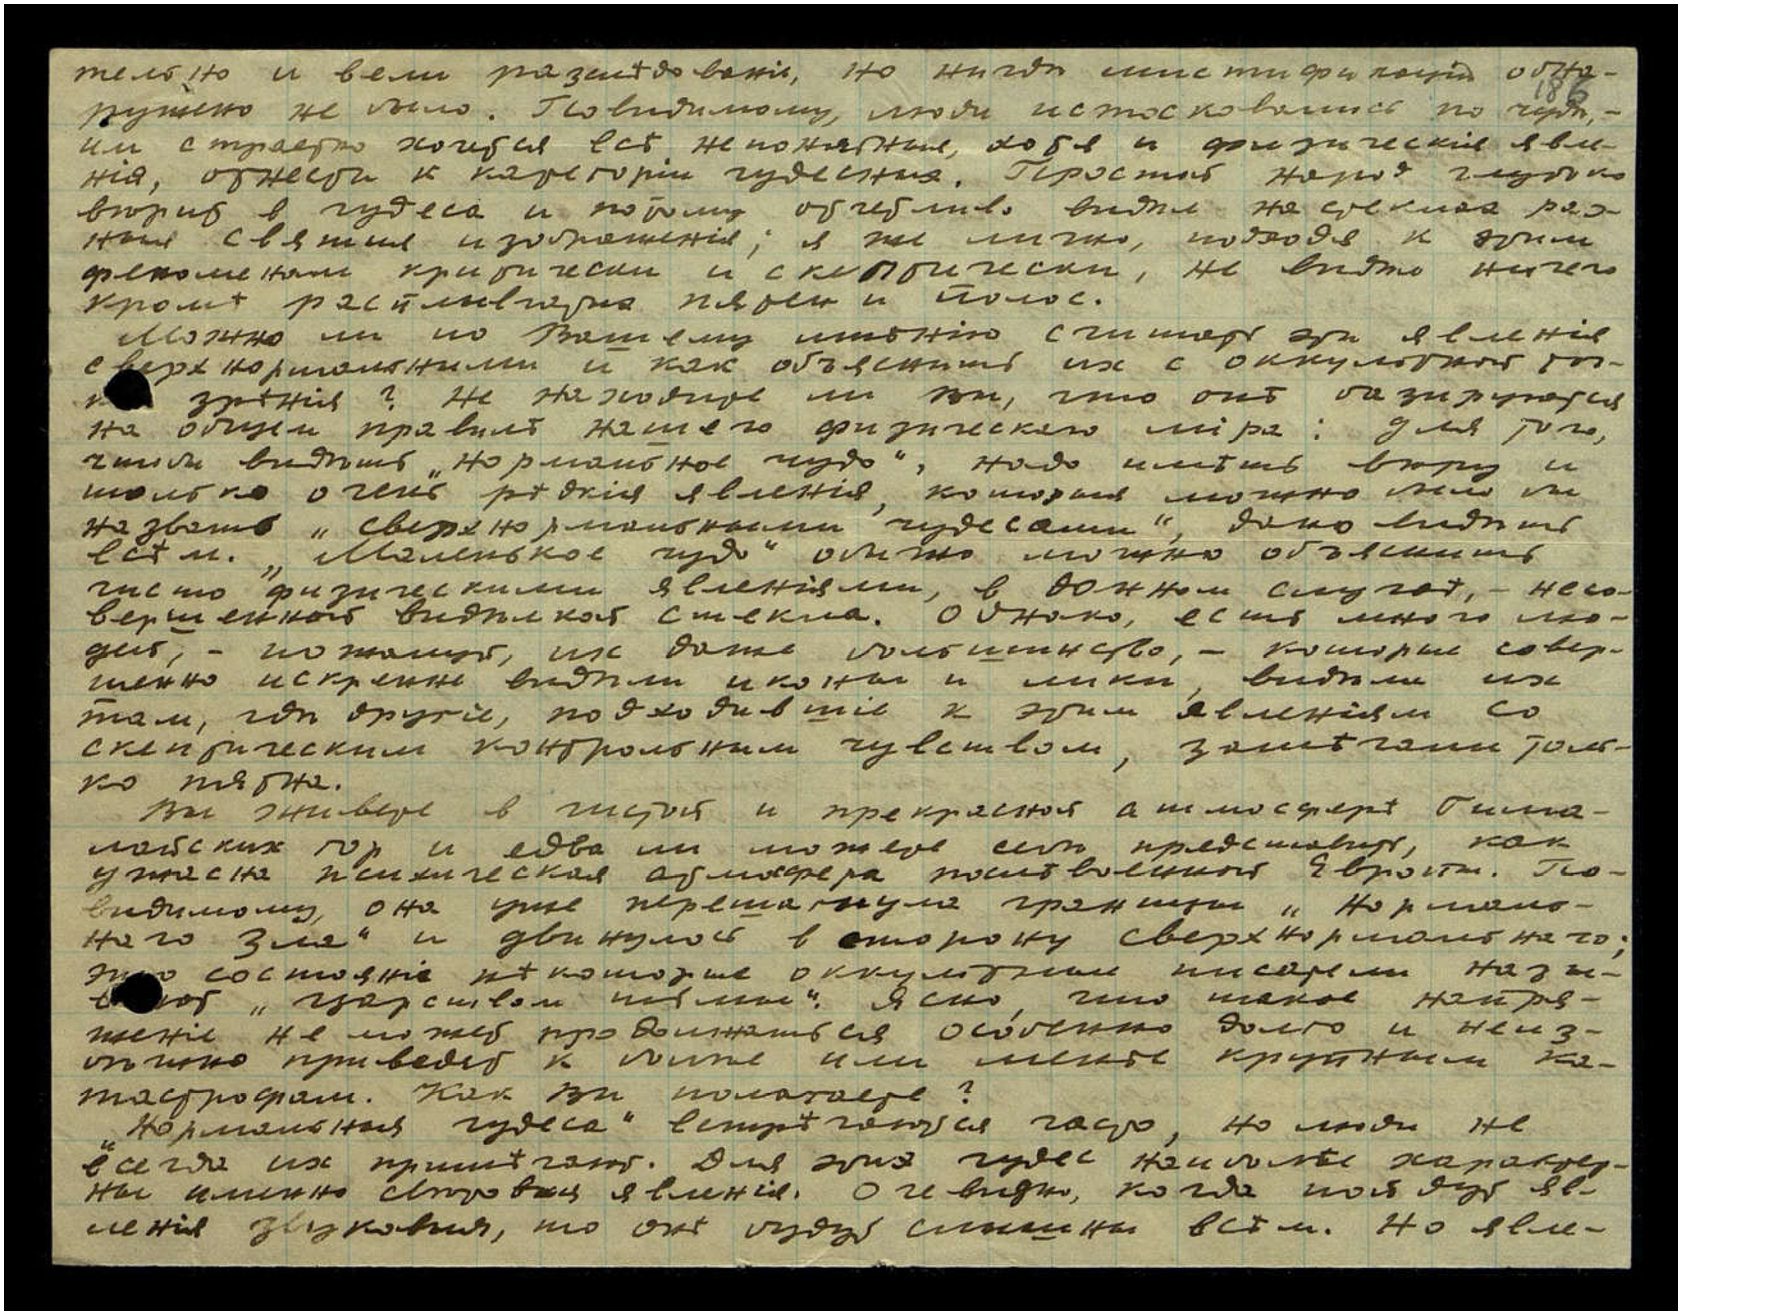 тельно и вели разслѣдованія, но нигдѣ мистификаціи обна-
186
ружено не было. Повидимому, люди истосковались по чуду,-
им страстно хочется всѣ непонятныя, хотя и физическія явле-
нія, отнести к категоріи чудесных. Простой народ глубоко
вѣрит в чудеса и потому отчетливо видѣл на стеклах раз-
ныя святыя изображенія; я же лично, подходя к этим
феноменам критически и скептически, не видѣл ничего
кромѣ расплывчатых пятен и полос.
Можно ли по Вашему мнѣнію считать эти явленія
сверхнормальными и как объяснить их с оккультной точ-
ки зрѣнія? Не находите ли Вы, что онѣ базируются
на общем правилѣ нашего физическаго міра: для того,
чтобы видѣть „нормальное чудо“, надо имѣть вѣру и
только очень рѣдкія явленія, которыя можно было бы
назвать „сверхнормальными чудесами“, дано видѣть
всѣм. „Маленькое чудо“ обычно можно объяснить
чисто физическими явленіями, в данном случаѣ,- несо-
вершенной выдѣлкой стекла. Однако, есть много лю-
дей,- пожалуй, их даже большинство,- которые совер-
шенно искренне видѣли иконы и лики, видѣли их
там, гдѣ другіе, подходившіе к этим явленіям со
скептическим контрольным чувством, замѣчали толь-
ко пятна.
Вы живете в чистой и прекрасной атмосферѣ Гима-
лайских гор и едва ли можете себѣ представить, как
ужасна психическая атмосфера послѣвоенной Европы. По-
видимому, она уже перешагнула границы „нормаль-
наго зла“ и двинулась в сторону сверхнормальнаго;
это состояніе нѣкоторые оккультные писатели назы-
вают „царством тьмы“. Ясно, что такое напря-
женіе не может продолжаться особенно долго и неиз-
бѣжно приведет к болѣе или менѣе крупным ка-
тастрофам. Как Вы полагаете?
„Нормальныя чудеса“ встрѣчаются часто, но люди не
всегда их примѣчают. Для этих чудес наиболѣе характер-
ны именно свѣтовыя явленія. Очевидно, когда пойдут яв-
ленія звуковыя, то онѣ будут слышны всѣм. Но явле-